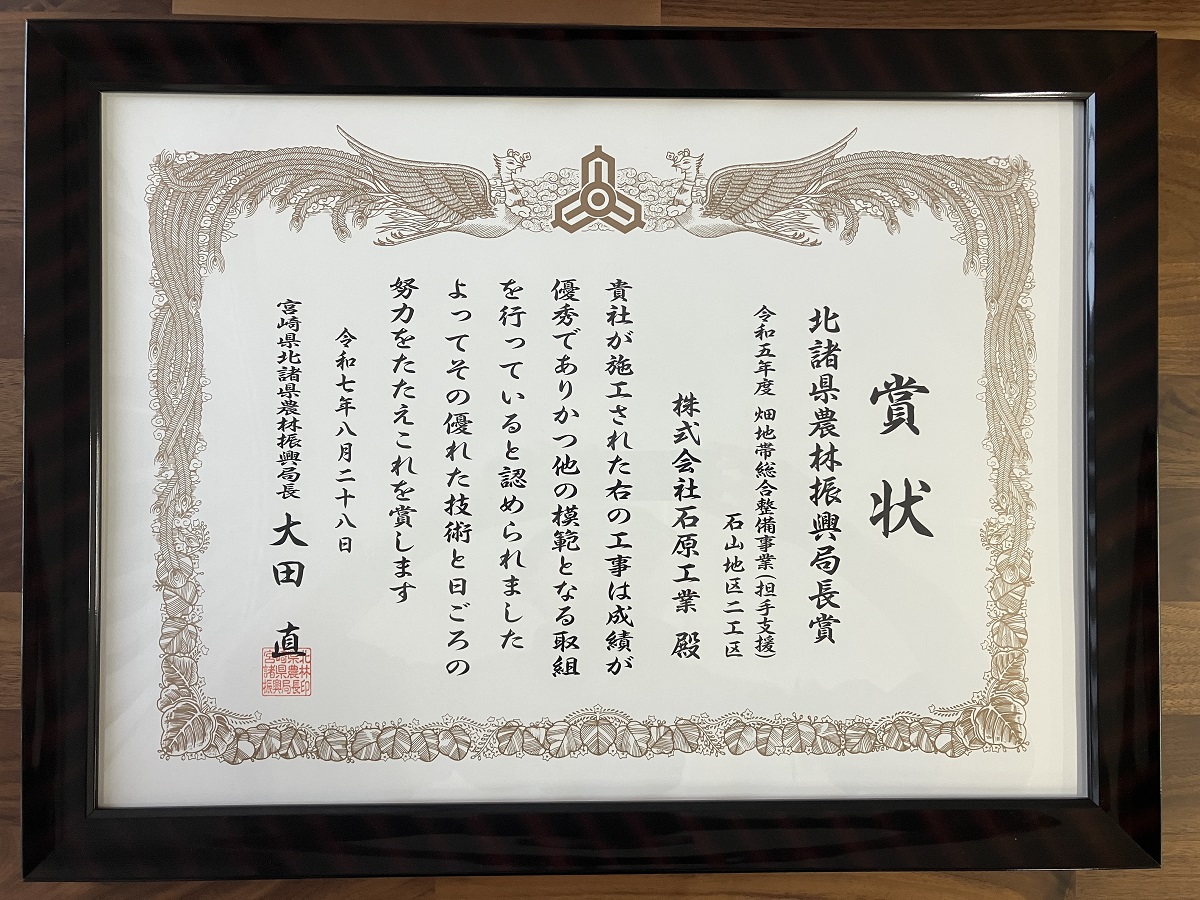 賞状
北諸県農林振興局長賞
令和五年度 畑地帯総合整備事業(担手支援)
石山地区二工区
株式会社石原工業 殿
貴社が施工された右の工事は成績が
優秀でありかつ他の模範となる取組
を行っていると認められました
よってその優れた技術と日ごろの
努力をたたえこれを賞します
令和七年八月二十八日
宮崎県北諸県農林振興局長 大田 直
宮崎県北諸県農林振興局長印